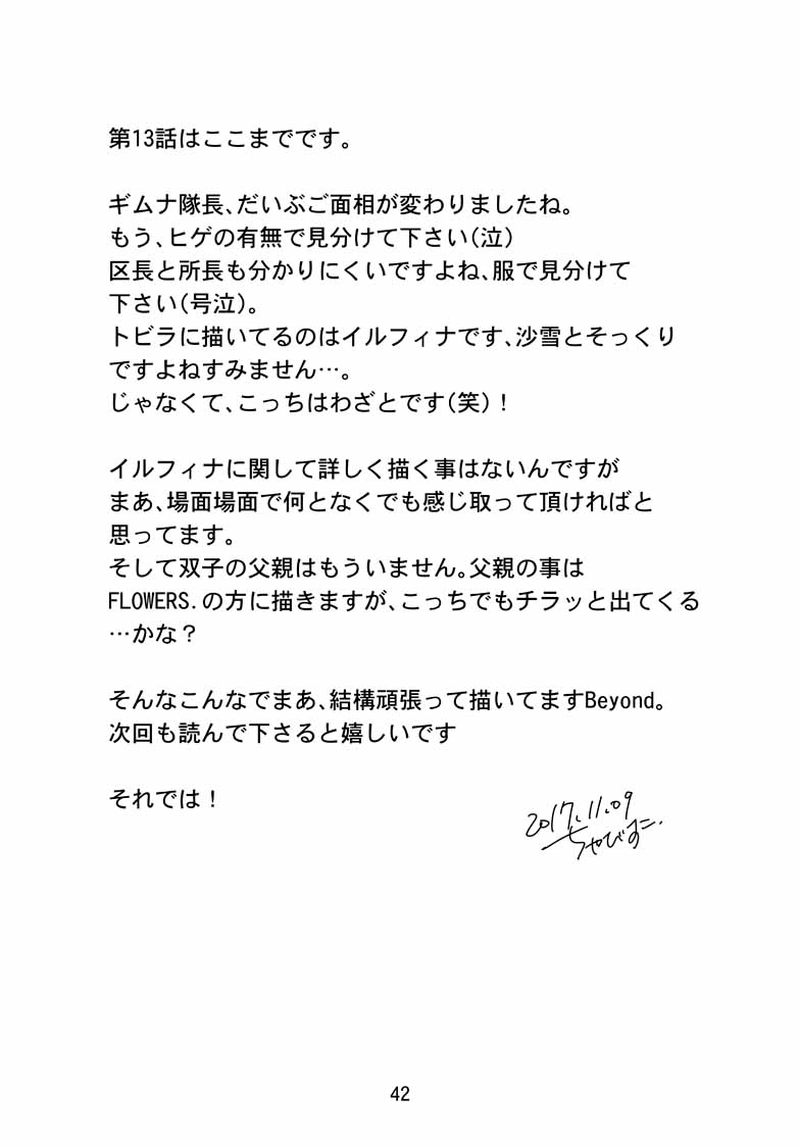 第13話はここまでです。
ギムナ隊長、だいぶご面相が変わりましたね。
もう、ヒゲの有無で見分けて下さい(泣)
区長と所長も分かりにくいですよね、服で見分けて
下さい(号泣)。
トビラに描いてるのはイルフィナです、沙雪とそっくり
ですよねすみません…。
じゃなくて、こっちはわざとです(笑)！
イルフィナに関して詳しく描く事はないんですが
まあ、場面場面で何となくでも感じ取って頂ければと
思ってます。
そして双子の父親はもういません。父親の事は
FLOWERS.の方に描きますが、こっちでもチラッと出てくる
…かな？
そんなこんなでまあ、結構頑張って描いてますBeyond。
次回も読んで下さると嬉しいです
それでは！
2017.11.09
ちゃびすこ.
42